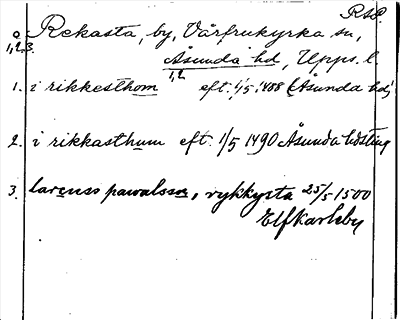 RSP.
o Rekasta, by, Vårfrukyrka sn,
1,2,3. Åsunda hd, Upps. l.
1,2
1. i rikkesthom eft. 1/5 1488 (Åsunda hd)
2. i rikkasthum eft 1/5 1490 Åsunda hdsting
3. larenss pawalsson, rykkysta 25/5 1500
Elfkarleby